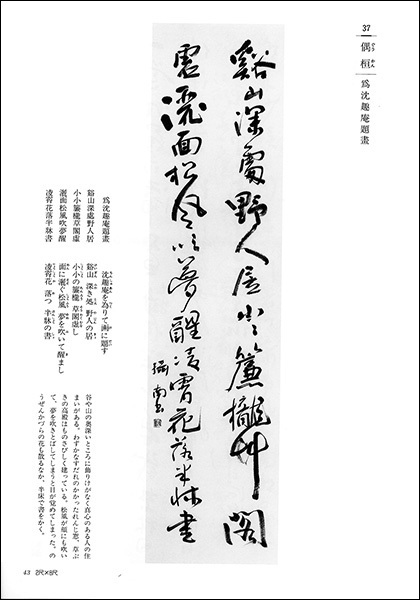 37
偶桓
爲沈趣庵題畫
谿山深處野人居小〻簾櫳草閣
虚灑面松風吹夢醒凌霄花落半牀書
爲沈趣庵題畫
谿山深處野人居
小小簾櫳草閣虚
灑面松風吹夢醒
凌霄花落半牀書
沈趣庵を為りて画に題す
谿山 深き処 野人の居
小小の簾櫳 草閣虚し
面に灑ぐ松風 夢を吹いて醒まし
凌霄花 落つ 半牀の書
谷や山の奥深いところに飾りけがなく真心のある人の住
まいがある。わずかなすだれのかかったれんじ窓、草ぶ
きの高殿はものさびしく建っている。松風が顔にも吹い
て、夢を吹きとばしてしまうと目が覚めてしまった。の
うぜんかづらの花も散るなか、半床で書をかく。
43 2尺×8尺